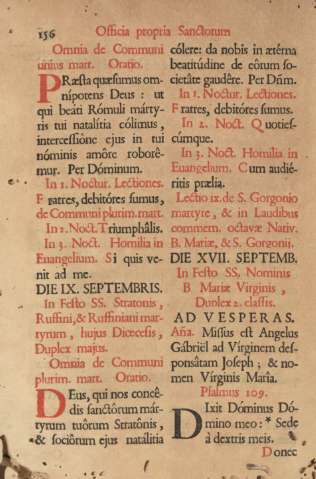 156 Officia propria Sanctorum
Omnia de Communi
unius mart. Oratio.
PRæsta quæsumus om-
nipotens Deus : ut
qui beáti Rómuli márty-
ris tui natalítia cólimus,
intercessióne ejus in tui
nóminis amóre roborê-
mur. Per Dóminum.
In 1. Noctur. Lectiones.
Fratres, debitóres sumus,
de Communi plurim. mart.
In 2. Noct. Triumphális.
In 3. Noct. Homilia in
Euangelium. Si quis ve-
nit ad me.
DIE IX. SEPTEMBRIS.
In Festo SS. Stratonis,
Ruffini, & Ruffiniani mar-
tyrum, hujus Diœcesis,
Duplex majus.
Omnia de Communi
plurim. mart. Oratio.
DEus, qui nos concê-
dis sanctórum már-
tyrum tuórum Stratônis,
& sociórum ejus natalítia
cólere: da nobis in ætérna
beatitúdine de eôrum so-
cietâte gaudêre. Per Dñm.
In 1. Noctur. Lectiones.
Fratres, debitóres sumus.
In 2. Noct. Quoties-
cúmque.
In 3. Noct. Homilia in
Euangelium. Cum audié-
ritis prælia.
Lectio ix. de S. Gorgonio
martyre, & in Laudibus
commem. octavæ Nativ.
B. Mariæ, & S. Gorgonij.
DIE XVII. SEPTEMB.
In Festo SS. Nominis
B. Mariæ Virginis,
Duplex 2. classis.
AD VESPERAS.
Aña. Missus est Angelus
Gábriël ad Vírginem des-
ponsátam Joseph ; & no-
men Vírginis María.
Psalmus 109.
DIxit Dóminus Dó-
mino meo : * Sede
à dextris meis.
Donec